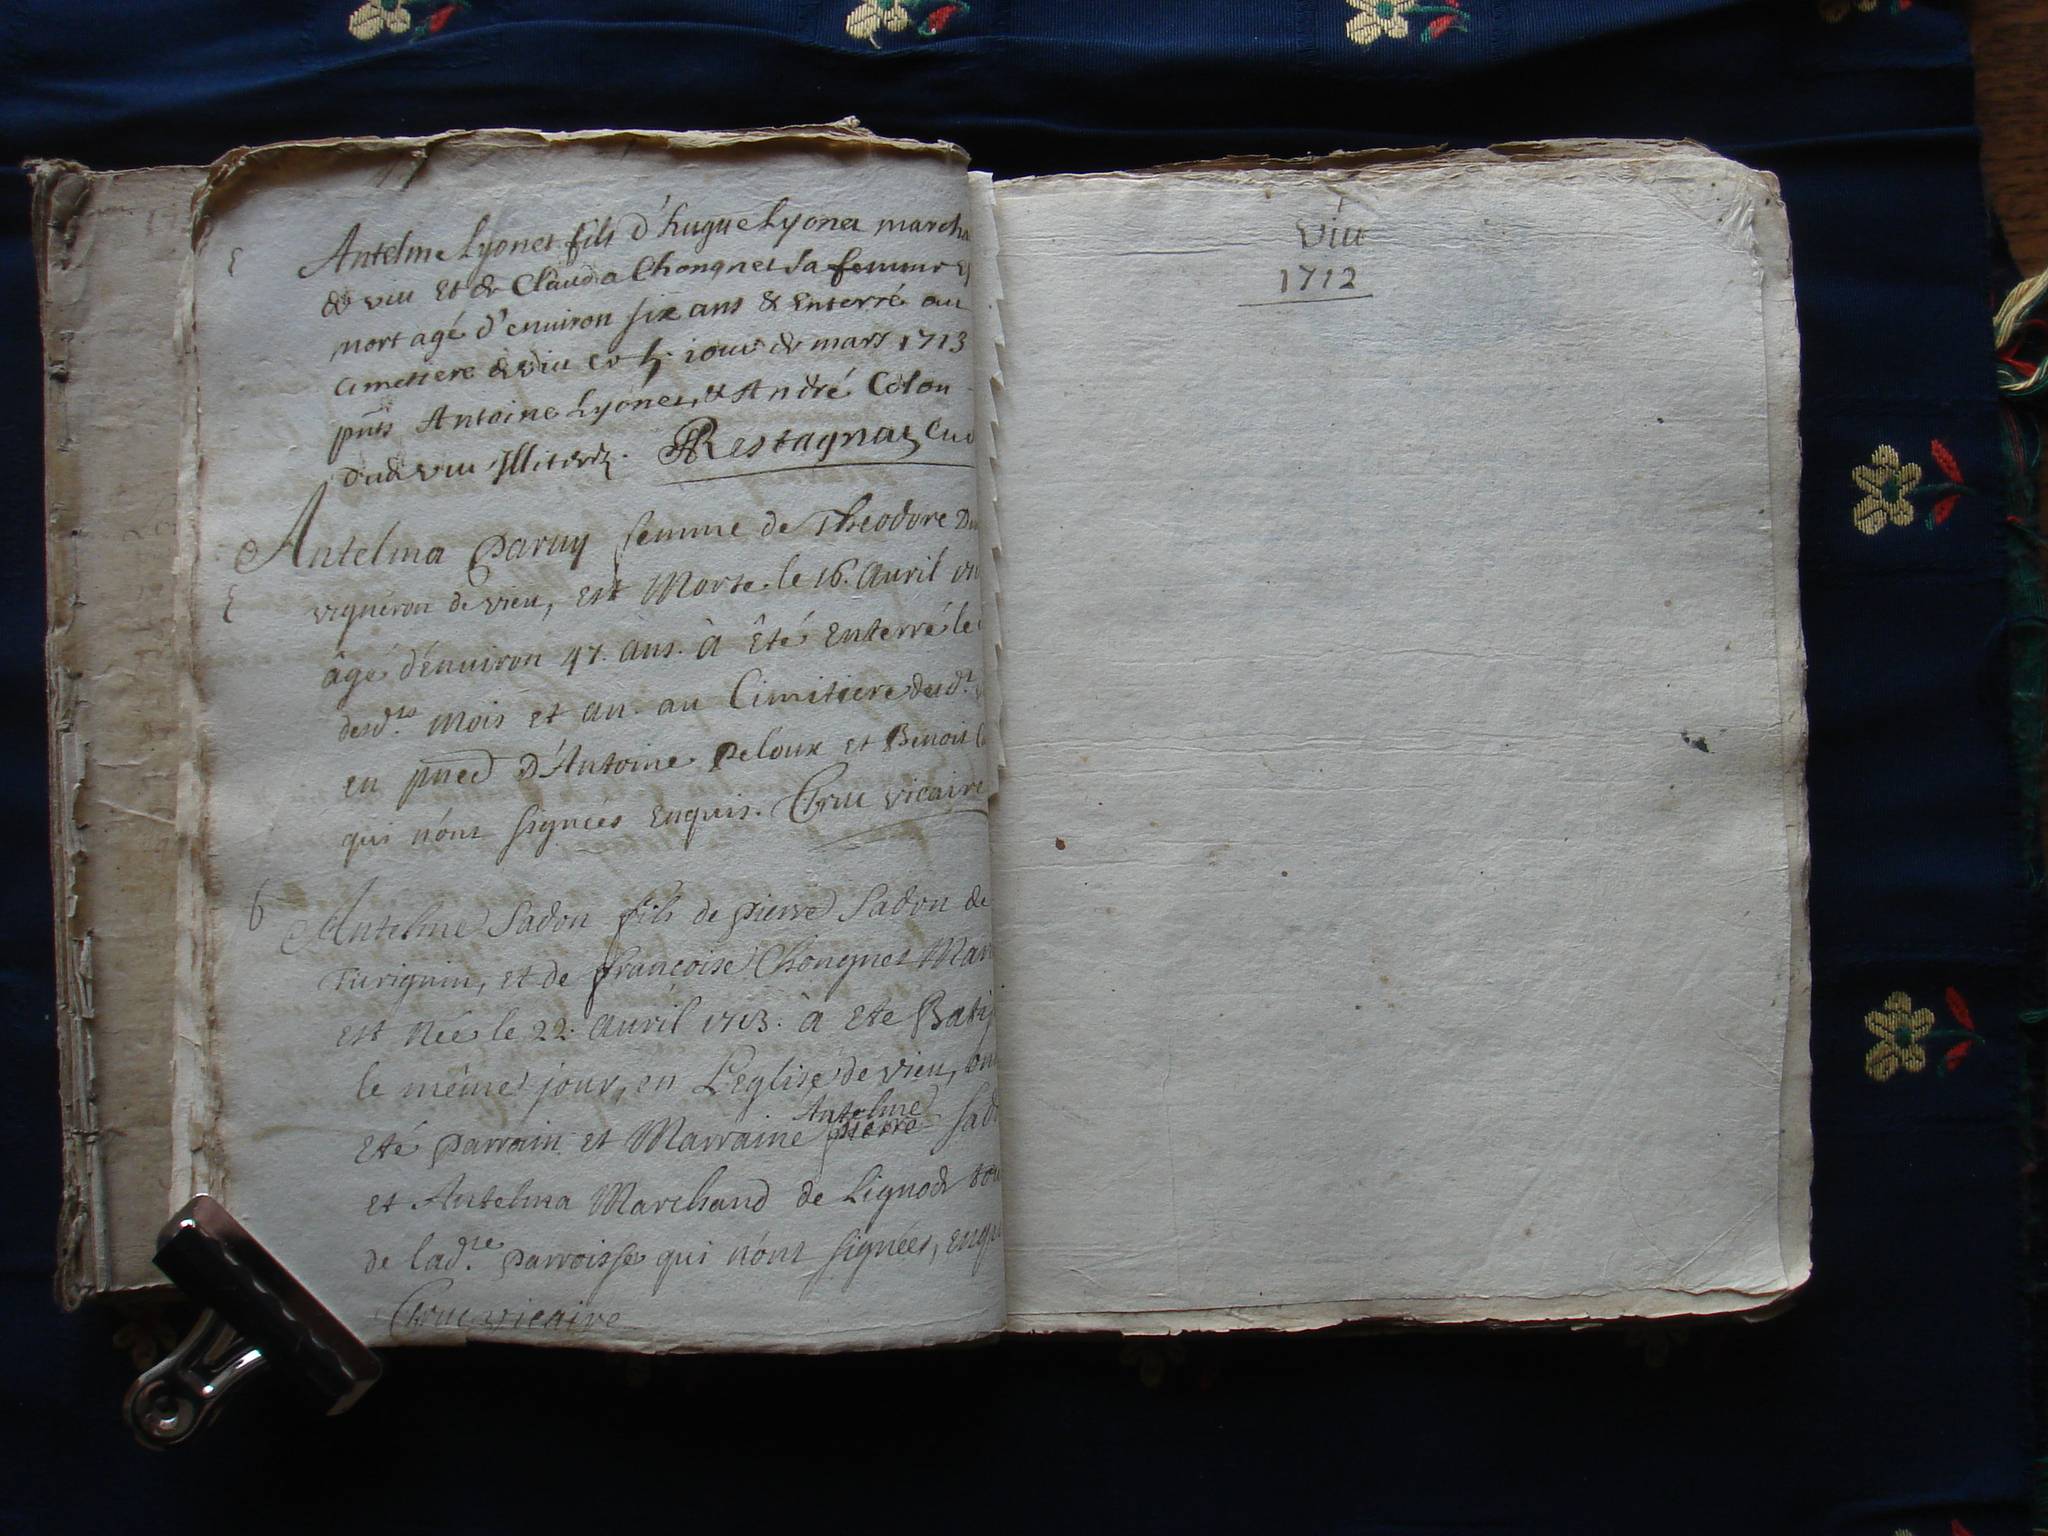 Antelme Lyonet fils d'hugue Lyonet marcha
de viu et de Clauda Chongnet sa femme
mort agé d'enuiron six ans & enterré au
cimettere de viu ce 5. iour de mars 1713
pnts Antoine Lyonet, & André Colon
dud viu Illiterez. Restagnat Cu
Antelma Paruy femme de Theodore Du
vigneron de vieu, est Morte le 16. Auril
âgé d'énuiron 47. ans. à êté enterré le
desd.ts mois et an. au Cimitiere dud.t
en pnce d'Antoine Peloux et Benoit
qui n'ont signées enquis. Gruc vicaire
6
Antelme Sadon fils de pierre Sadon de
Turignin, et de françoise Chongnet Mar
est née le 22. auril 1713. à ete Bati
le même jour, en L'eglise de vieu, ont
Antelme
eté parrain et Marraine pierre Sad
et Antelma Marchand de Lignod tou
de lad.te parroisse qui n'ont signées, enqu
Gruc vicaire
Viu
1712